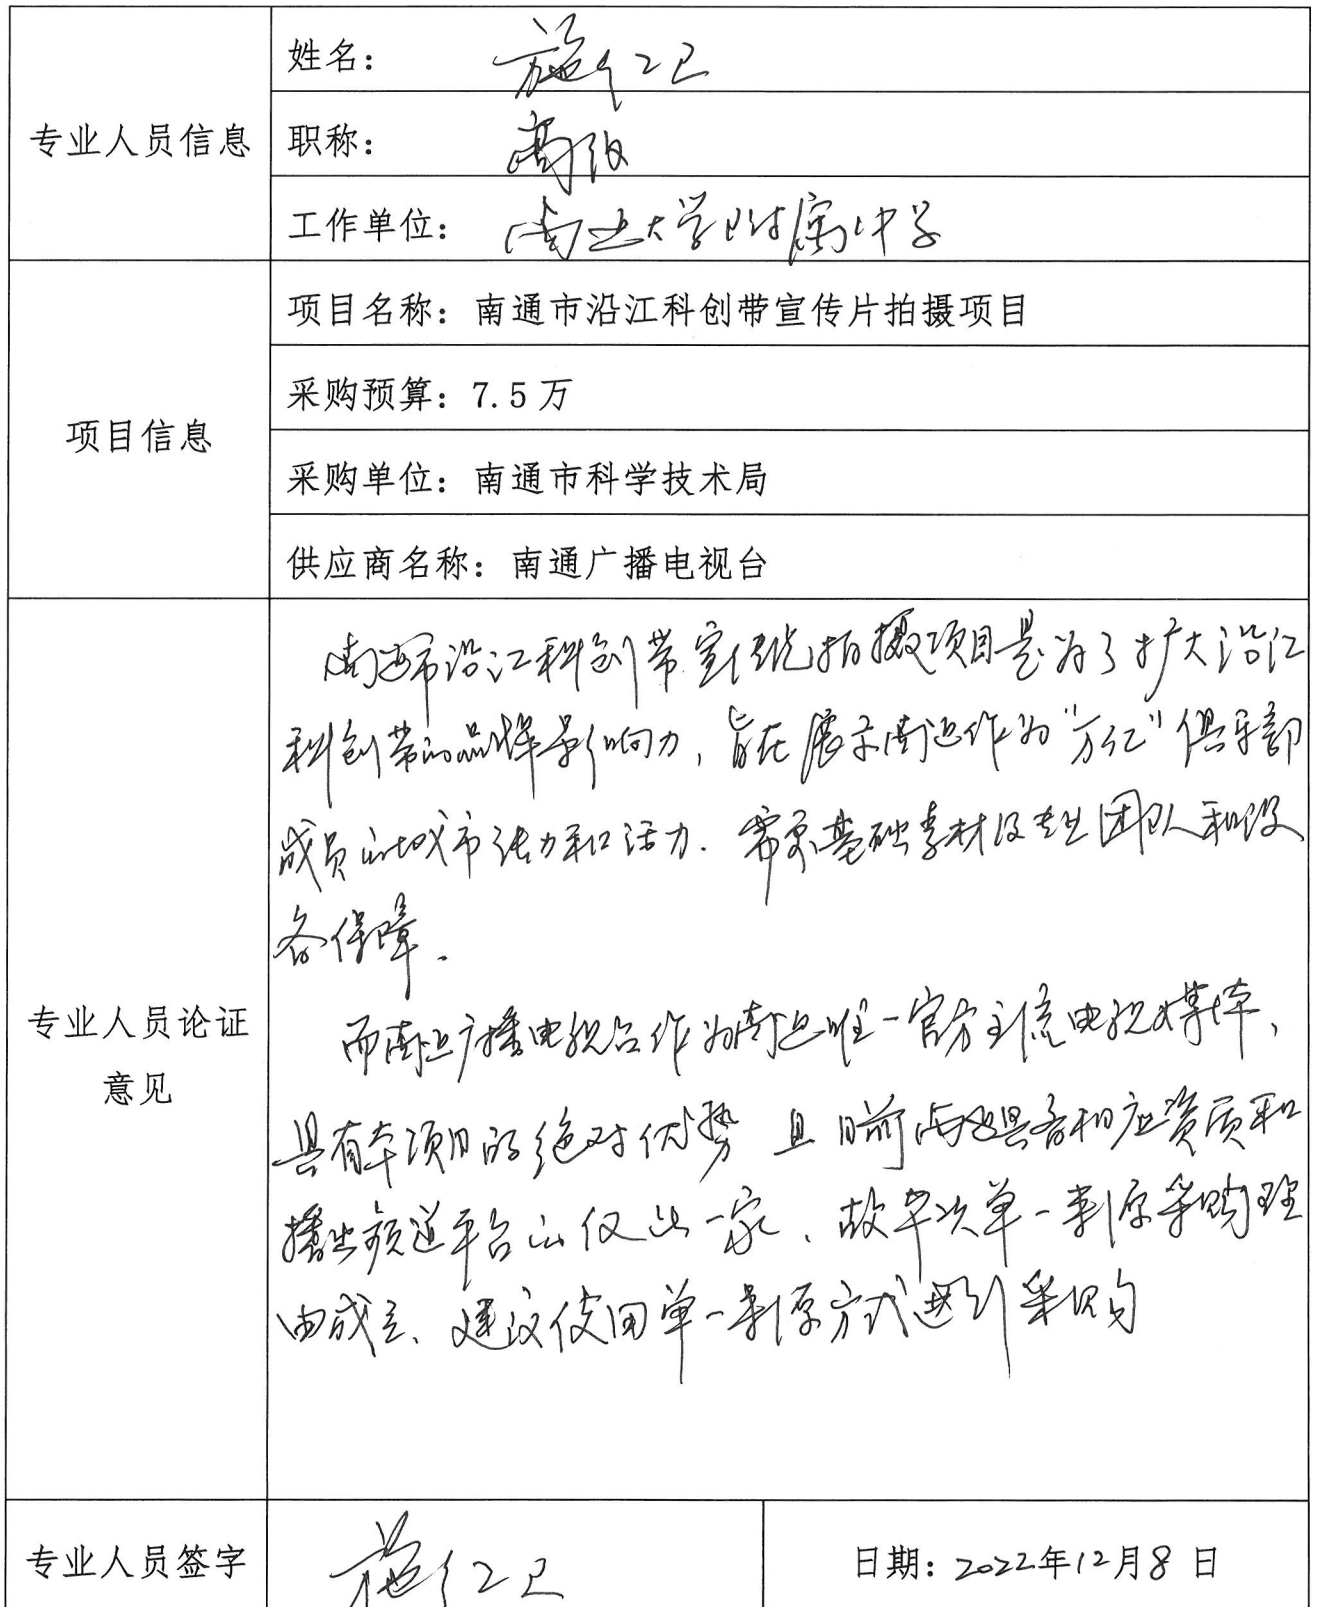 专业人员信息
姓名：施卫
职称：高级
工作单位：南通大学附属中学
项目信息
项目名称：南通市沿江科创带宣传片拍摄项目
采购预算：7.5万
采购单位：南通市科学技术局
供应商名称：南通广播电视台
专业人员论证
意见
南通市沿江科创带宣传片拍摄项目是为了扩大沿江
科创带的品牌影响力，旨在展示南通作为“万亿”俱乐部
成员的城市张力和活力．需要基础素材及专业团队和设
备保障．
而南通广播电视台作为南通唯一官方主流电视媒体，
具有本项目的绝对优势 且目前南通具备相应资质和
播出频道平台的仅此一家，故本次单一来源采购理
由成立、建议使用单一来源方式进行采购
专业人员签字
施卫
日期：2022年12月8日